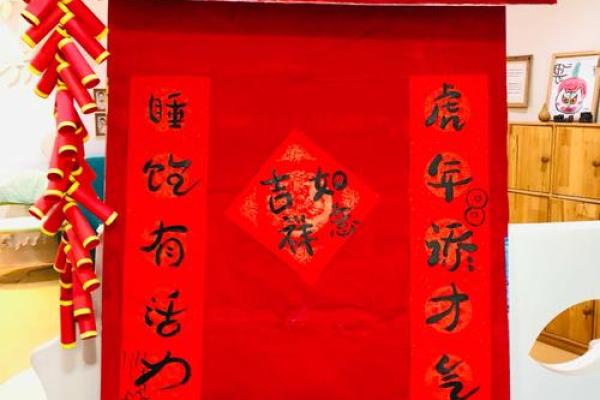 虎年添才气
睡饱有活力
如意
吉祥